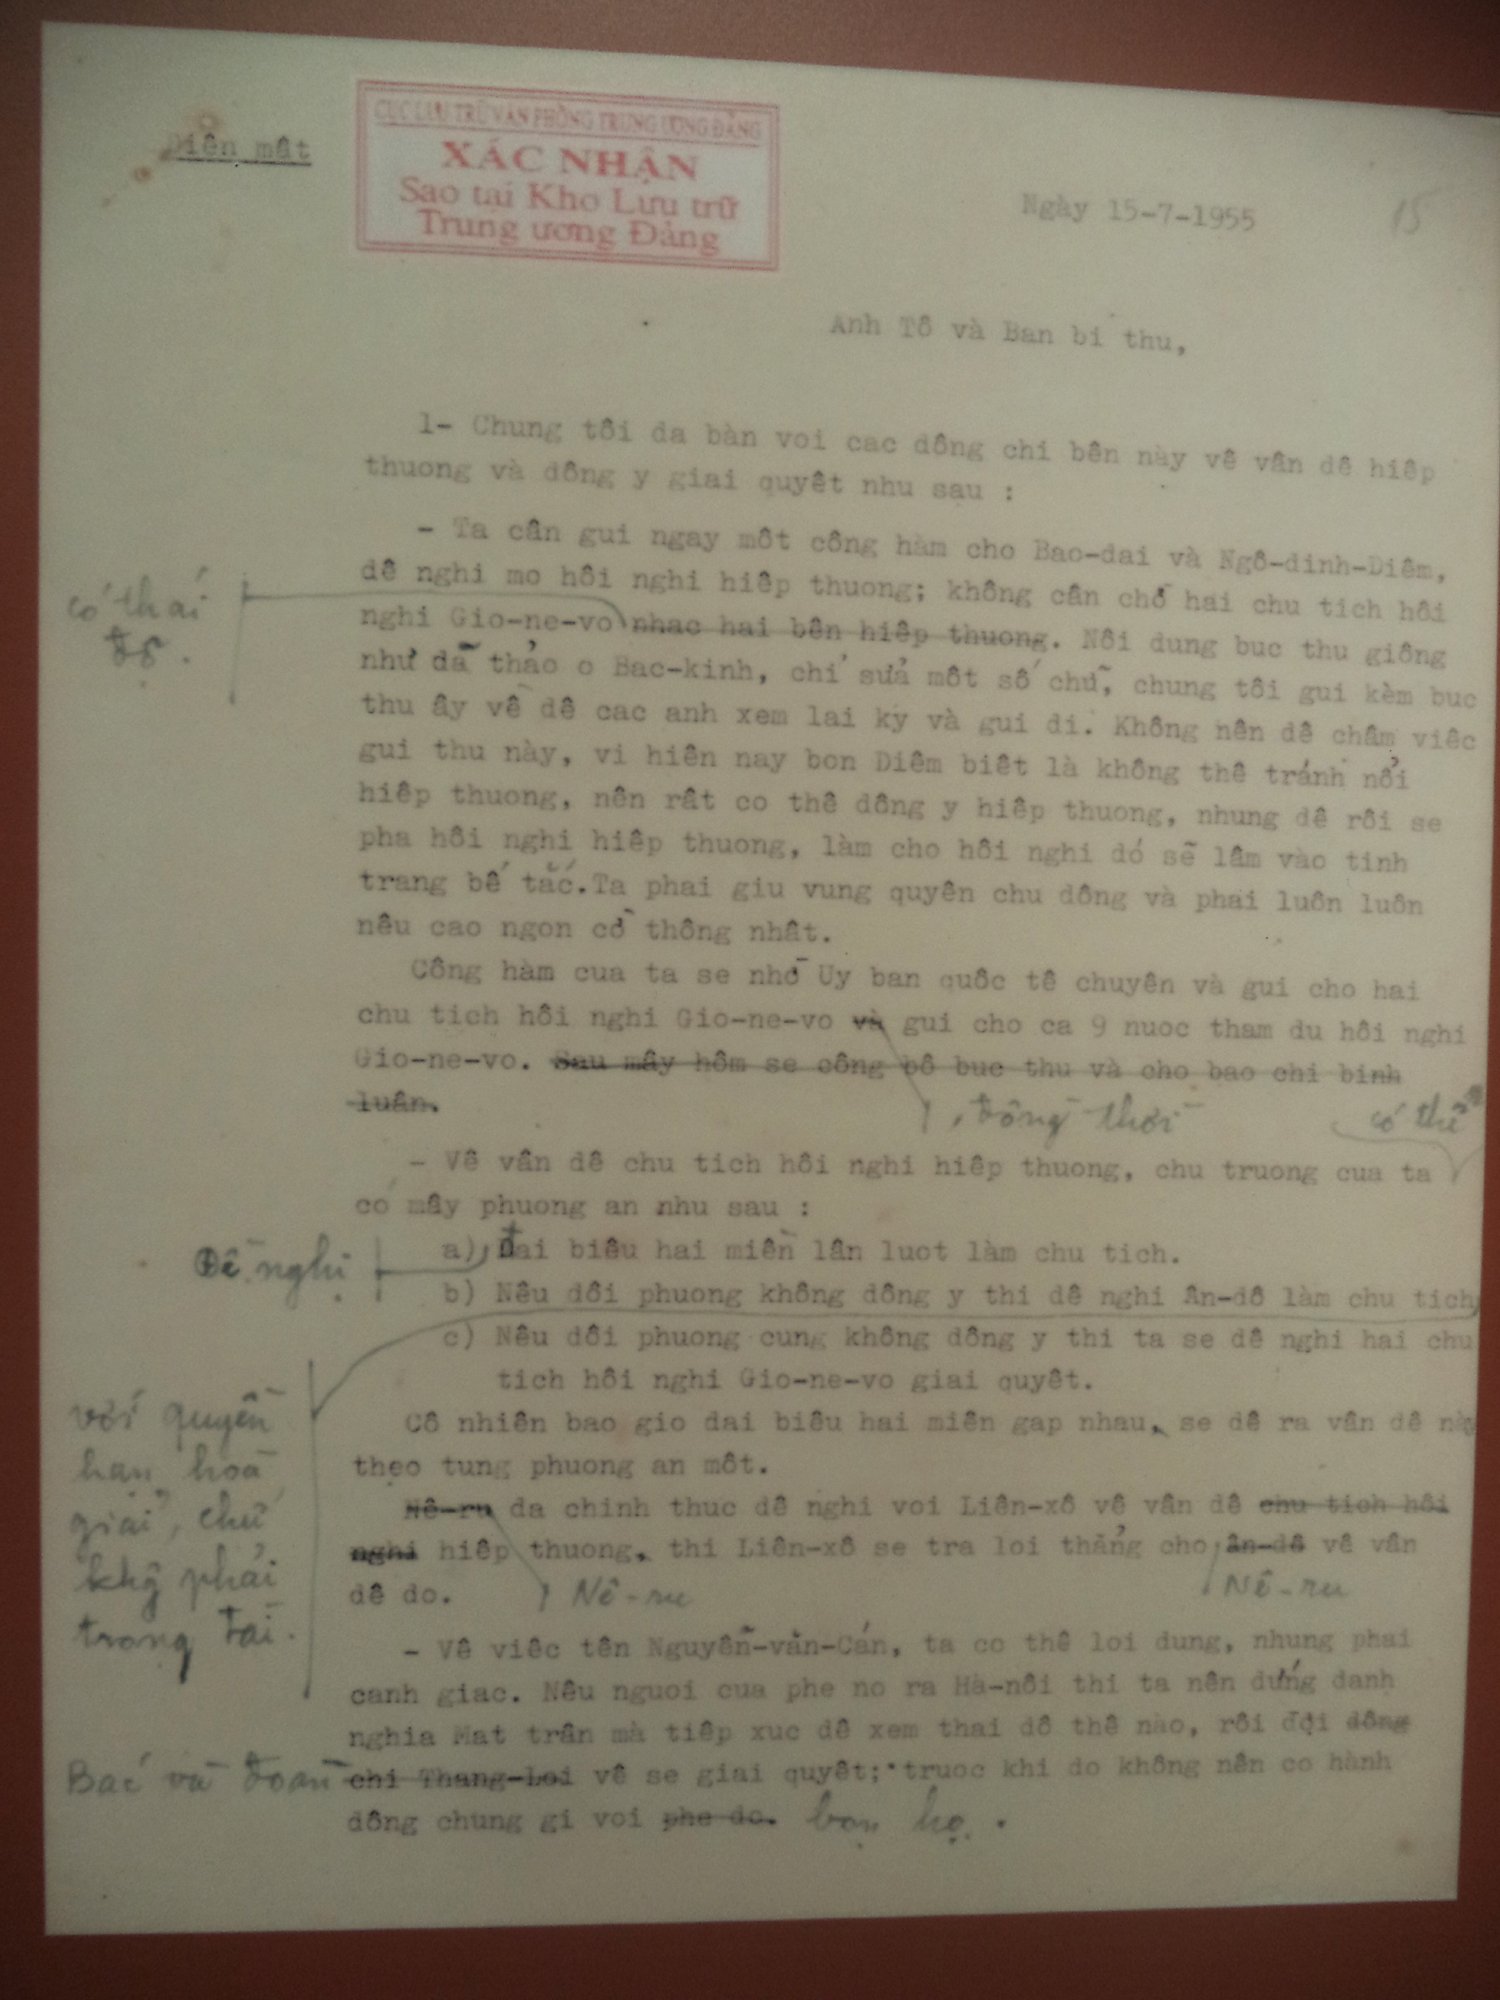 CỤC LƯU TRỮ VĂN PHÒNG TRUNG ƯƠNG ĐẢNG
XÁC NHẬN
Sao tại Kho Lưu trữ
Trung ương Đảng
Diên mât
Ngày 15-7-1955
15
Anh Tô và Ban bi thu,
1- Chung tôi da bàn voi cac dông chi bên này vê vân dê hiêp
thuong và dông y giai quyêt nhu sau :
- Ta cân gui ngay môt công hàm cho Bao-dai và Ngô-dinh-Diêm,
dê nghi mo hôi nghi hiêp thuong; không cân chờ hai chu tich hôi
có thái
độ.
nghi Gio-ne-vo nhac hai bên hiêp thuong. Nôi dung buc thu giông
như dã thảo o Bac-kinh, chỉ sửa môt số chữ, chung tôi gui kèm buc
thu ây về dê cac anh xem lai ky và gui di. Không nên dê châm viêc
gui thu này, vi hiên nay bon Diêm biêt là không thê tránh nổi
hiêp thuong, nên rât co thê dông y hiêp thuong, nhung dê rôi se
pha hôi nghi hiêp thuong, làm cho hôi nghi dó sẽ lâm vào tinh
trang bế tắc.Ta phai giu vung quyên chu dông và phai luôn luôn
nêu cao ngon cờ thông nhât.
Công hàm cua ta se nhờ Uy ban quôc tê chuyên và gui cho hai
chu tich hôi nghi Gio-ne-vo và gui cho ca 9 nuoc tham du hôi nghi
Gio-ne-vo. Sau mây hôm se công bô buc thu và cho bao chi binh
luân.
, đồng thời
có thể
- Vê vân dê chu tich hôi nghi hiêp thuong, chu truong cua ta
có mây phuong an nhu sau :
Đề nghị
a) đai biêu hai miền lân luot làm chu tich.
b) Nêu dôi phuong không dông y thi dê nghi Ân-dô làm chu tich
c) Nêu dôi phuong cung không dông y thi ta se dê nghi hai chu
tich hôi nghi Gio-ne-vo giai quyêt.
với quyền
hạn hoà
giải, chứ
khg phải
trọng tài.
Cô nhiên bao gio dai biêu hai miên gap nhau, se dê ra vân dê này
theo tung phuong an môt.
Nê-ru da chinh thuc dê nghi voi Liên-xô vê vân dê chu tich hôi
nghi hiêp thuong, thi Liên-xô se tra loi thẳng cho ân-dô vê vân
dê do.
Nê-ru
Nê-ru
- Vê viêc tên Nguyễn-văn-Cán, ta co thê loi dung, nhung phai
canh giac. Nêu nguoi cua phe no ra Hà-nôi thi ta nên dứng danh
nghia Mat trân mà tiêp xuc dê xem thai dô thê nào, rôi đợi dông
Bác và đoàn
chi Thang-Loi vê se giai quyêt; truoc khi do không nên co hành
dông chung gi voi phe do. bọn họ.